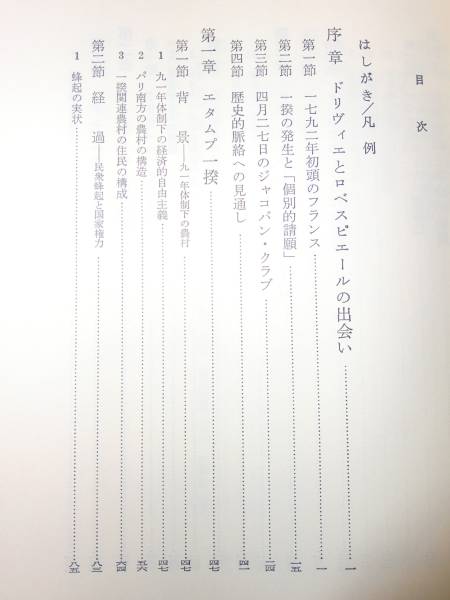 目次
はしがき/凡例
序章 ドリヴィエとロベスピエールの出会い……一
第一節 一七九二年初頭のフランス……一
第二節 一揆の発生と「個別的請願」……一五
第三節 四月二七日のジャコバン・クラブ……二四
第四節 歴史的脈絡への見通し……四一
第一章 エタムプ一揆……四七
第一節 背景——九一年体制下の農村……四七
1 九一年体制下の経済的自由主義……四七
2 パリ南方の農村の構造……五六
3 一揆関連農村の住民の構成……六四
第二節 経過——民衆蜂起と国家権力……八三
1 蜂起の実状……八五